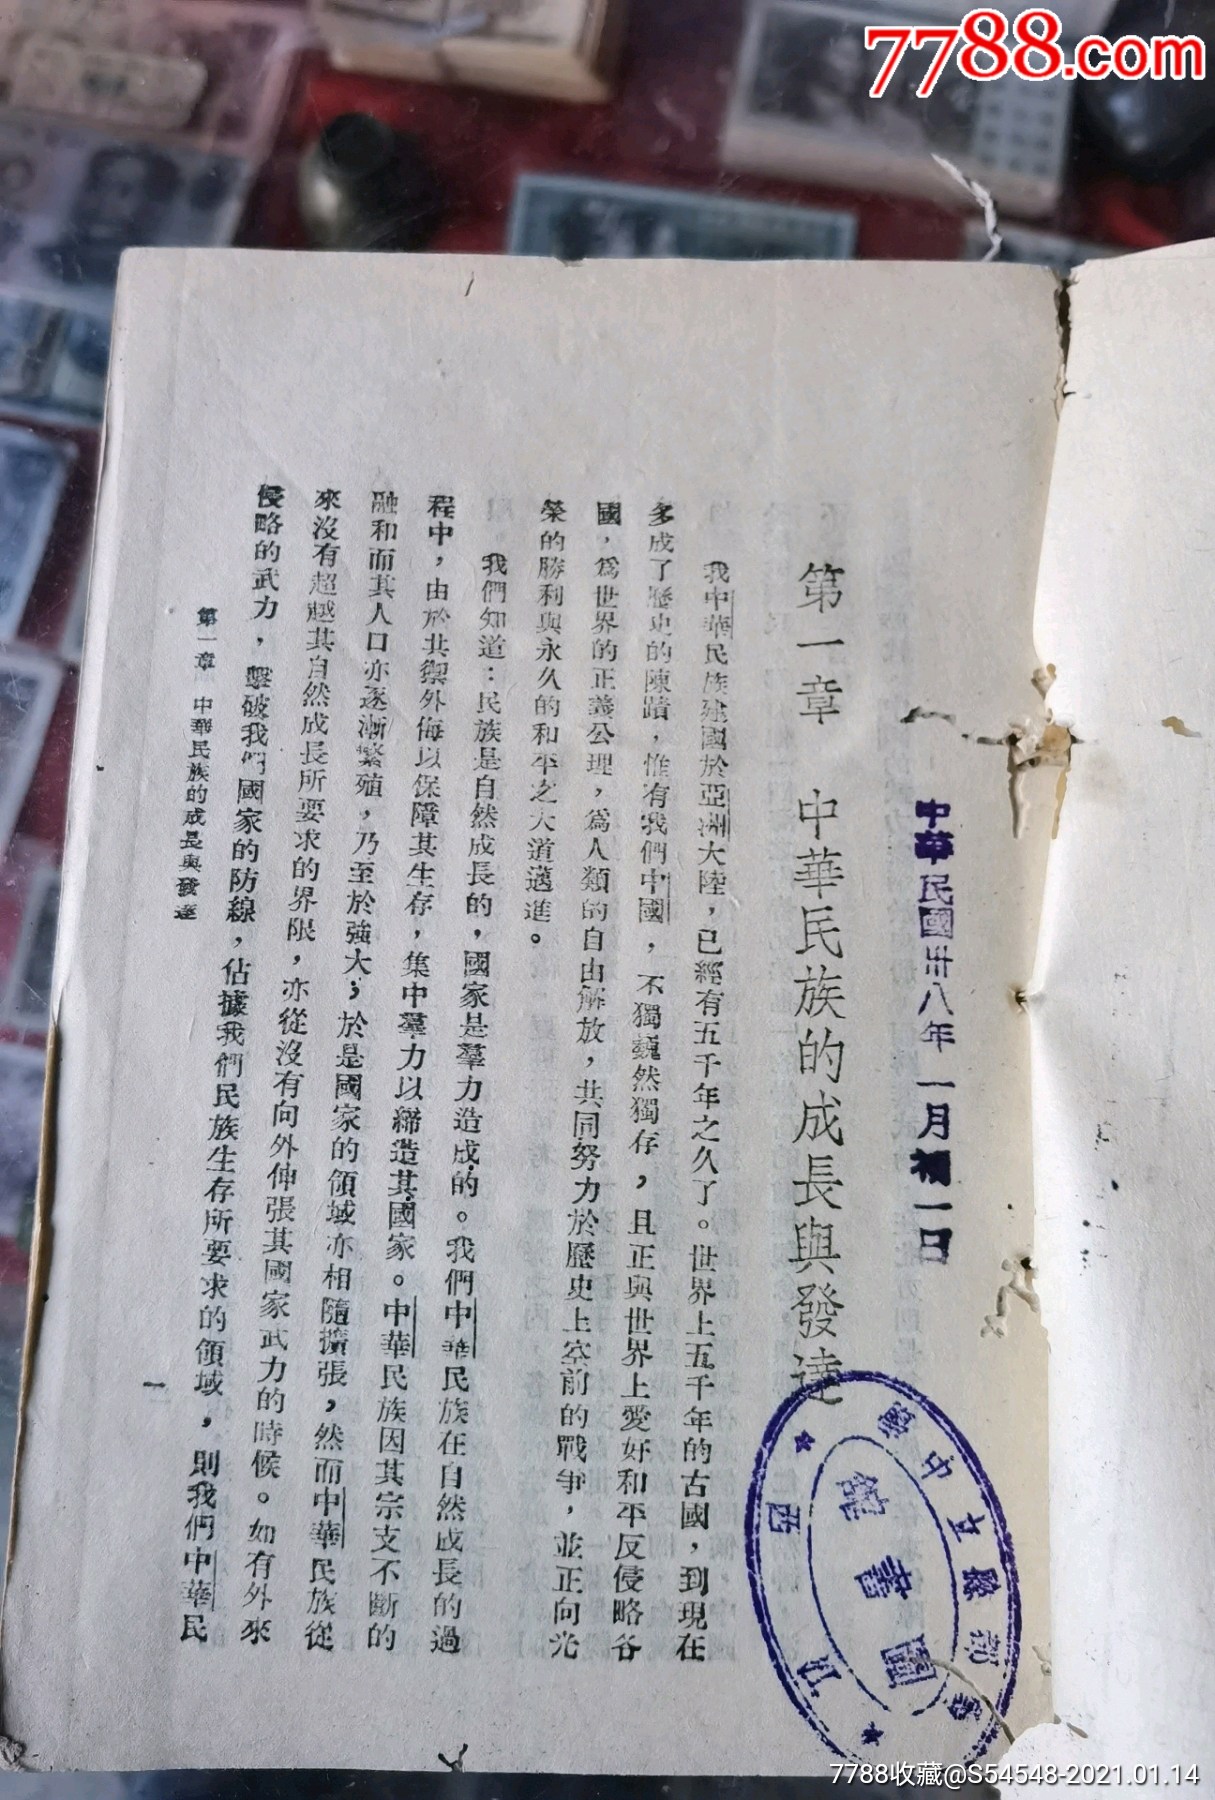 7788.com
中華民國卅八年一月補一日
第一章　中華民族的成長與發達
我中華民族建國於亞洲大陸，已經有五千年之久了。世界上五千年的古國，到現在
多成了歷史的陳蹟，惟有我們中國，不獨巍然獨存，且正與世界上愛好和平反侵略各
國，爲世界的正義公理，爲人類的自由解放，共同努力於歷史上空前的戰爭，並正向光
榮的勝利與永久的和平之大道邁進。
我們知道：民族是自然成長的，國家是羣力造成的。我們中華民族在自然成長的過
程中，由於共禦外侮以保障其生存，集中羣力以締造其國家。中華民族因其宗支不斷的
融和而其人口亦逐漸繁殖，乃至於強大，於是國家的領域亦相隨擴張，然而中華民族從
來沒有超越其自然成長所要求的界限，亦從沒有向外伸張其國家武力的時候。如有外來
侵略的武力，擊破我們國家的防線，佔據我們民族生存所要求的領域，則我們中華民
第一章　中華民族的成長與發達
一
圖書館
7788收藏@S54548-2021.01.14